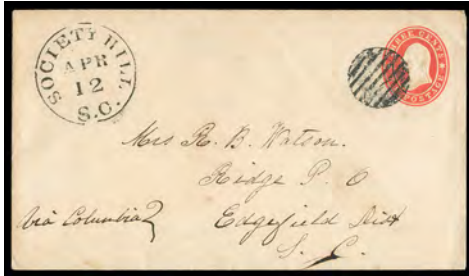 SOCIETY HILL
APR
12
S.C.
THREE CENTS
POSTAGE
Mrs R. B. Watson.
Ridge P. O
Edgefield Dist
S. C.
Via Columbia